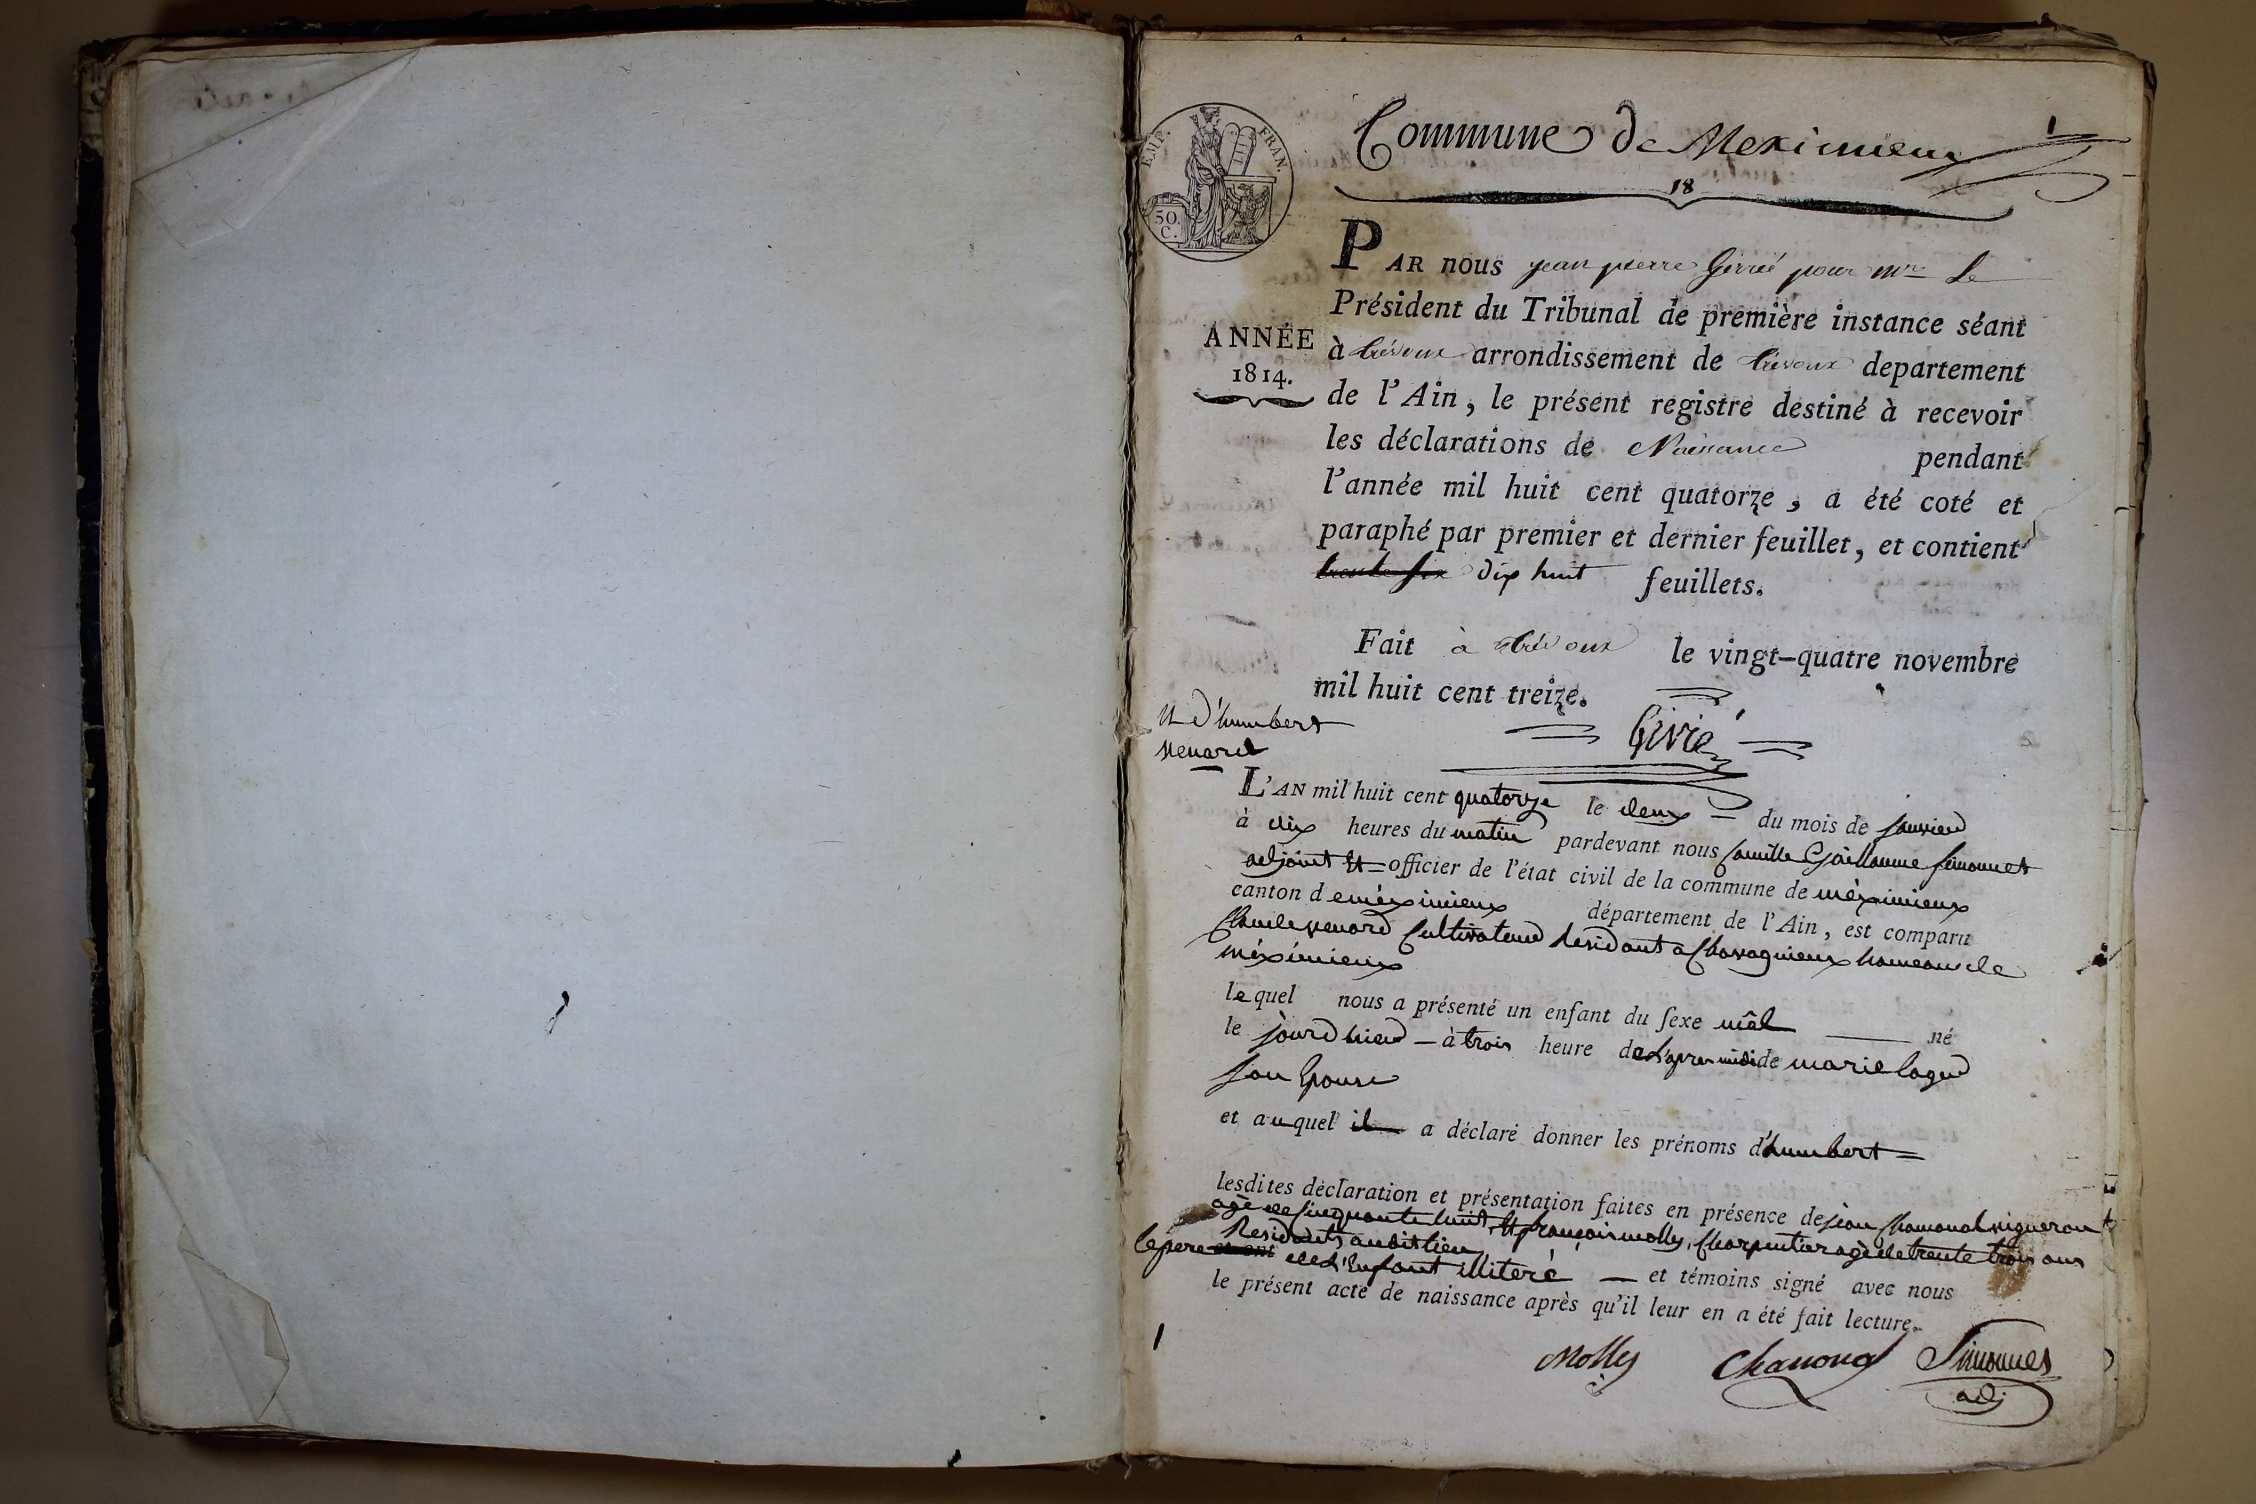 Commune de Meximieux
1
18
EMP. FRAN.
50.
C.
PAR nous jean pierre Givrié pour mr le
Président du Tribunal de première instance séant
ANNÉE
1814.
à trévoux arrondissement de trévoux departement
de l'Ain, le présent registre destiné à recevoir
les déclarations de Naissance pendant
l'année mil huit cent quatorze, a été coté et
paraphé par premier et dernier feuillet, et contient
trente six dix huit feuillets.
Fait à trévoux le vingt-quatre novembre
mil huit cent treize.
N d'humbert
venard
Givrié
L'AN mil huit cent quatorze le deux du mois de janvier
à dix heures du matin pardevant nous Camille Guillaume Simonnet
adjoint et officier de l'état civil de la commune de méximieux
canton de méximieux département de l'Ain, est comparu
Claude venard Cultivateur résidant a Chavagnieux hameau de
méximieux
lequel nous a présenté un enfant du sexe mâl né
le jour d'hier à trois heure de l'apres midi de marie lager
son Epouse
et auquel il a déclaré donner les prénoms d'humbert
lesdites déclaration et présentation faites en présence de jean Chanonal vigneron
agé de cinquante huit, et françois molly, Charpentier agé de trente trois ans
Residents audit lieu
le pere de L'Enfant illiteré et témoins signé avec nous
le présent acte de naissance après qu'il leur en a été fait lecture.
1
Molly Chanonal Simonnet
adj